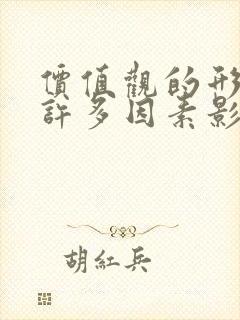 價值觀的形
許多因素影
胡紅兵